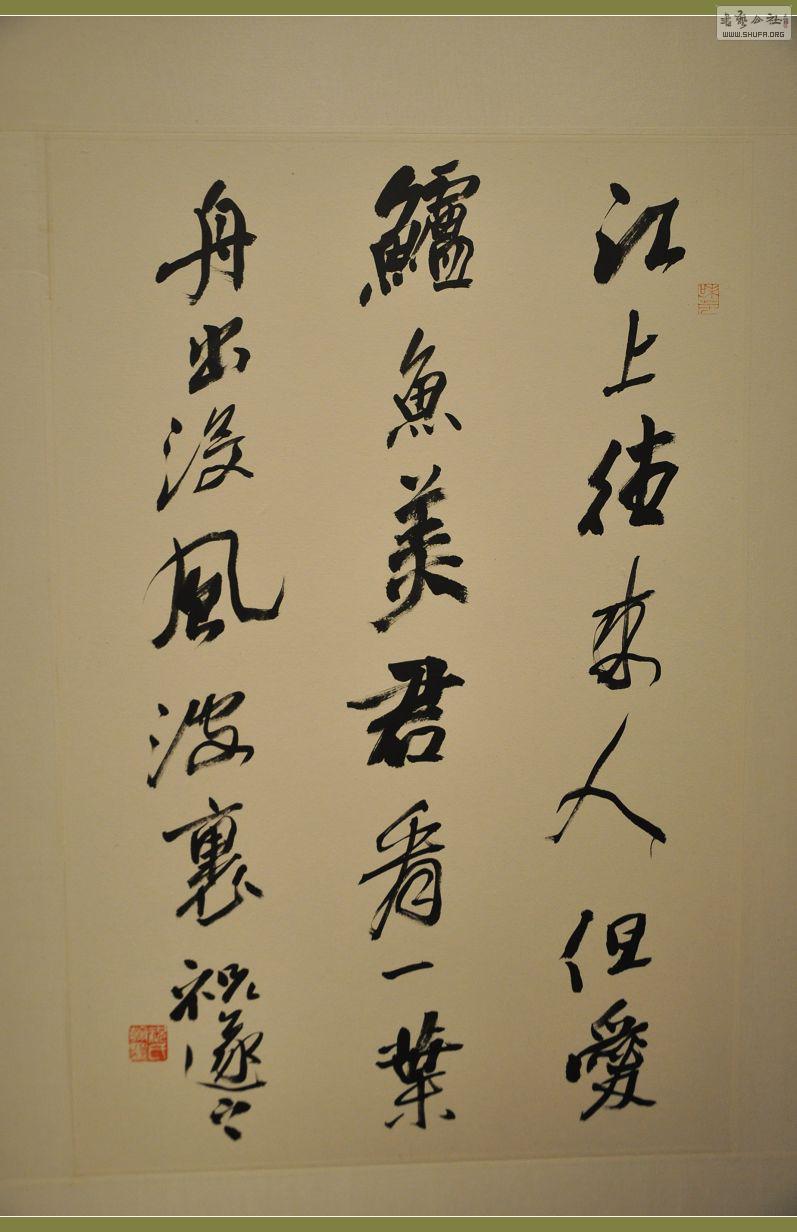 江上往來人但愛
鱸魚美君看一葉
舟出沒風波裏 祝遂之
WWW.SHUFA.ORG